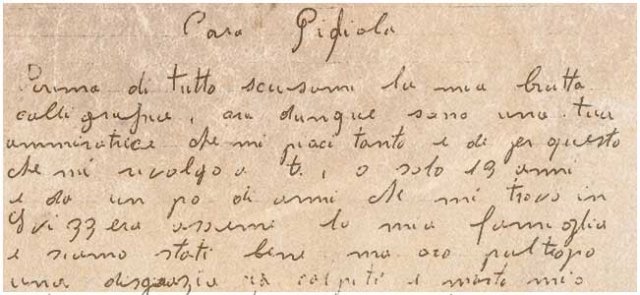 Cara Pidiola
Prima di tutto scusami la mia brutta
calligrafia, ora dunque sono una tua
ammiratrice che mi piaci tanto e di per questo
che mi rivolgo a t. , o solo 19 anni
e da un po di anni che mi trovo in
era assieme la mia famiglia
e siamo stati bene ma oro pultropo
una disgrazia ci colpiti e morto mio